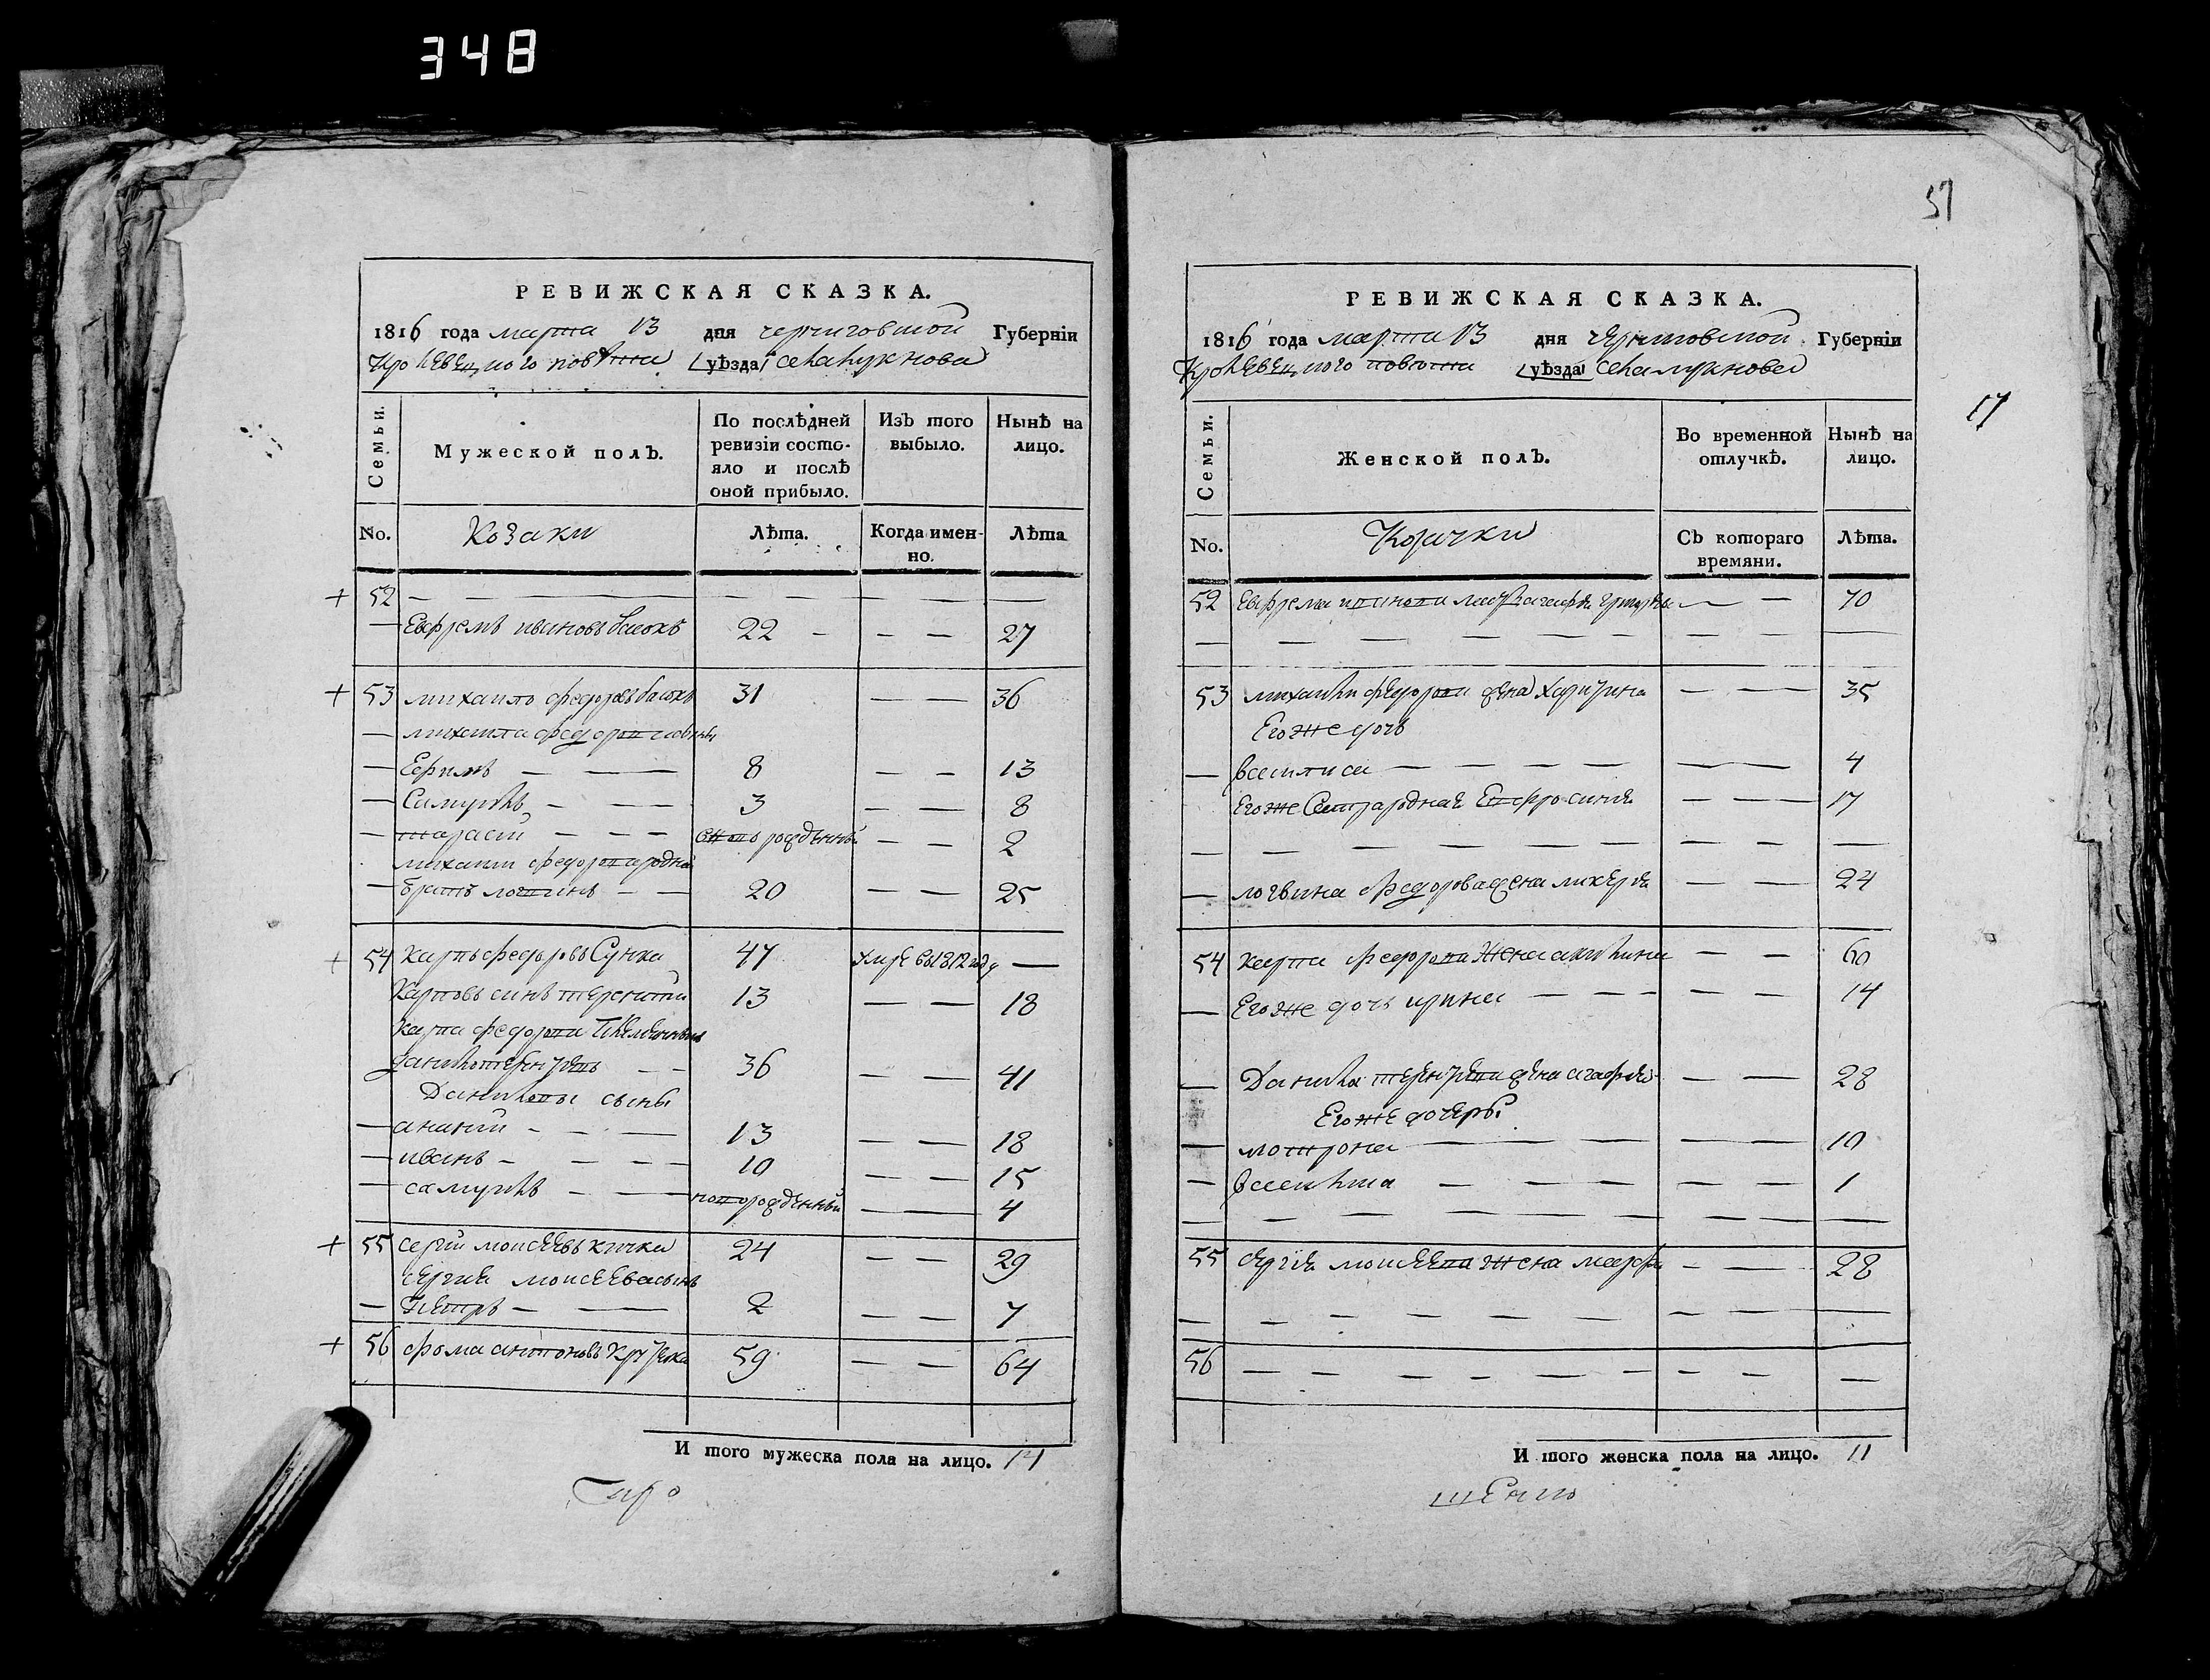 348
51
РЕВИЖСКАЯ СКАЗКА.
1816 года марта 13 дня черниговской Губерніи
Кролевецкого повѣта уѣзда села Лукнова
Семьи.
Мужеской полъ.
По послѣдней ревизіи состояло и послѣ оной прибыло.
Изъ того выбыло.
Нынѣ на лицо.
No. Козаки Лѣта. Когда именно. Лѣта
52 — — — — — —
— Ефремъ ивановъ 22 — — — 27
53 михаило федоровъ 31 — — 36
— михаила федорова сыны
— Ефимъ — — 8 — — 13
— Самуилъ — — 3 — — 8
— тарасій — — — вновь рожденный — — 2
михаила федорова родной
— братъ логвинъ — — 20 — — 25
54 карпъ федоровъ Сучка 47 умре въ 1812 году —
Карповъ синъ терентій 13 — — 18
карпа федорова племянникъ
данило 36 — — 41
Даниловы сыны
— ананій — — — 13 — — 18
— иванъ — — — — 10 — — 15
— самуилъ — — новорожденный — — 4
55 сергій моисеевъ кички 24 — — 29
сергія моисеева сынъ
— Петръ — — 2 — — 7
56 фома антоновъ 59 — — 64
И того мужеска пола на лицо. 14
РЕВИЖСКАЯ СКАЗКА.
1816 года марта 13 дня черниговской Губерніи
Кролевецкого повѣта уѣзда села Лукнова
17
Семьи.
Женской полъ.
Во временной отлучкѣ.
Нынѣ на лицо.
No. Козачки Съ котораго времяни. Лѣта.
52 Ефрема иванова — — 70
53 михаила федорова жена — — — 35
Его же дочь
— василиса — — — — — — 4
Его же Сестра родная Ефросинія — — — 17
— логвина федорова жена ликерія — — 24
54 карпа федорова жена акилина — — 60
— Его же дочь ирина — — — — — 14
— Данила жена агафія — — 28
Его же дочери
— мотрона — — — 10
— василиса — — — — — 1
55 сергія моисеева жена марфа — — — 28
56 — — — — — — — — —
И того женска пола на лицо. 11